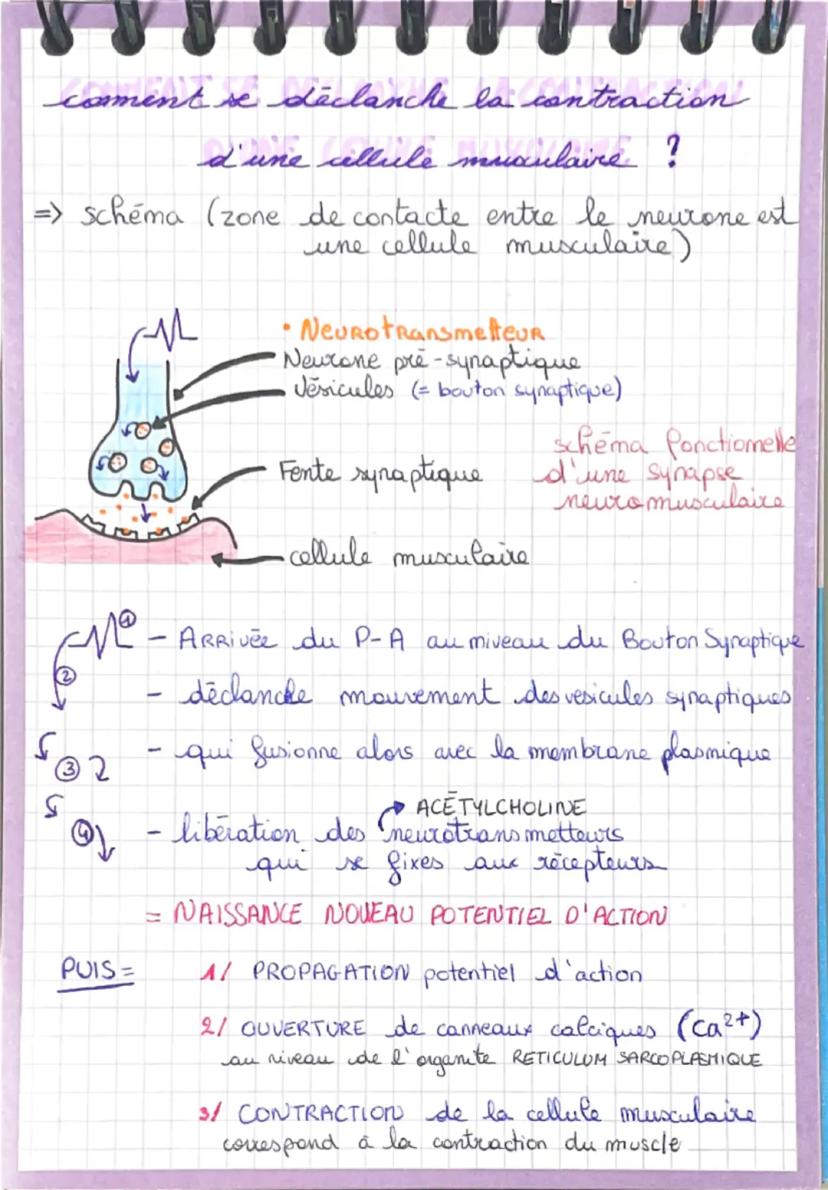 comment se déclanche la contraction
d'une cellule musculaire ?
=> schéma (zone de contacte entre le neurone est
une cellule musculaire)
• NEUROTRANSMETTEUR
Neurone pré-synaptique
Vésicules (= bouton synaptique)
Fente synaptique
schéma fonctionnelle
d'une synapse
neuromusculaire
cellule musculaire
① - ARRIVÉE du P-A au niveau du Bouton Synaptique
② - déclanche mouvement des vesicules synaptiques
③ - qui fusionne alors avec la membrane plasmique
ACÉTYLCHOLINE
④ - libération des neurotransmetteurs
qui se fixes aux récepteurs
= NAISSANCE NOUEAU POTENTIEL D'ACTION
PUIS = 1/ PROPAGATION potentiel d'action
2/ OUVERTURE de canneaux calciques (Ca²⁺)
au niveau de l'organite RETICULUM SARCOPLASMIQUE
3/ CONTRACTION de la cellule musculaire
correspond à la contraction du muscle